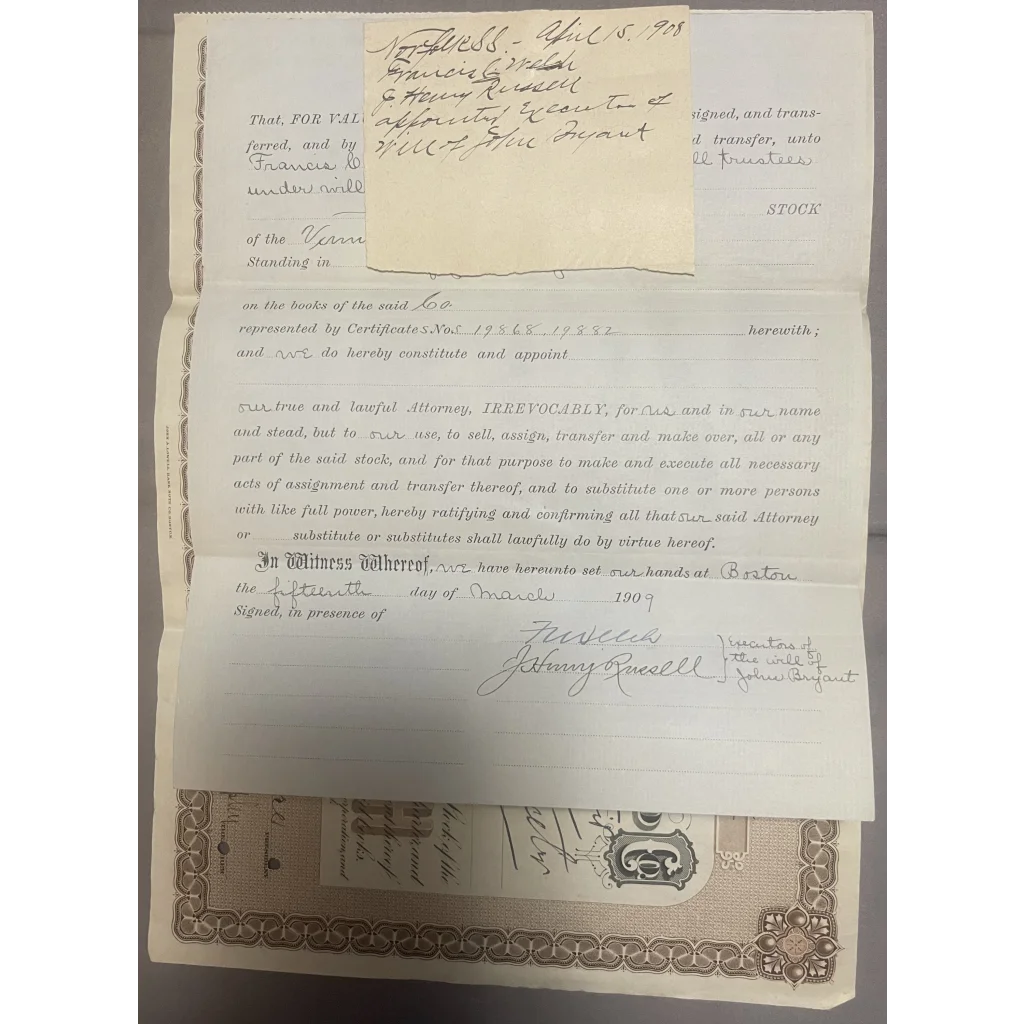 Norfolk SS. - April 15, 1908
Francis C. Welch
J. Henry Russell
appointed Executors of
Will of John Bryant
That, FOR VAL signed, and trans-
ferred, and by d transfer, unto
Francis C ll trustees
under will
STOCK
of the Verm
Standing in
on the books of the said Co.
represented by Certificates Nos. 19868, 19882 herewith;
and we do hereby constitute and appoint
our true and lawful Attorney, IRREVOCABLY, for us and in our name
and stead, but to our use, to sell, assign, transfer and make over, all or any
part of the said stock, and for that purpose to make and execute all necessary
acts of assignment and transfer thereof, and to substitute one or more persons
with like full power, hereby ratifying and confirming all that our said Attorney
or substitute or substitutes shall lawfully do by virtue hereof.
In Witness Whereof, we have hereunto set our hands at Boston
the fifteenth day of March 1909
Signed, in presence of
FCWelch
J. Henry Russell
Executors of
the will of
John Bryant
Co.